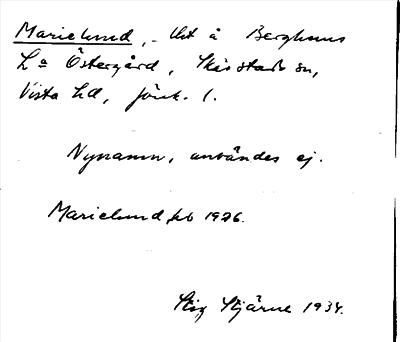 Marielund, - lht å Berghems
La Östergård, Skärstads sn,
Vista hd, Jönk. l.
Nynamn, användes ej.
Marielund, kb 1926.
Stig Stjärne 1934.